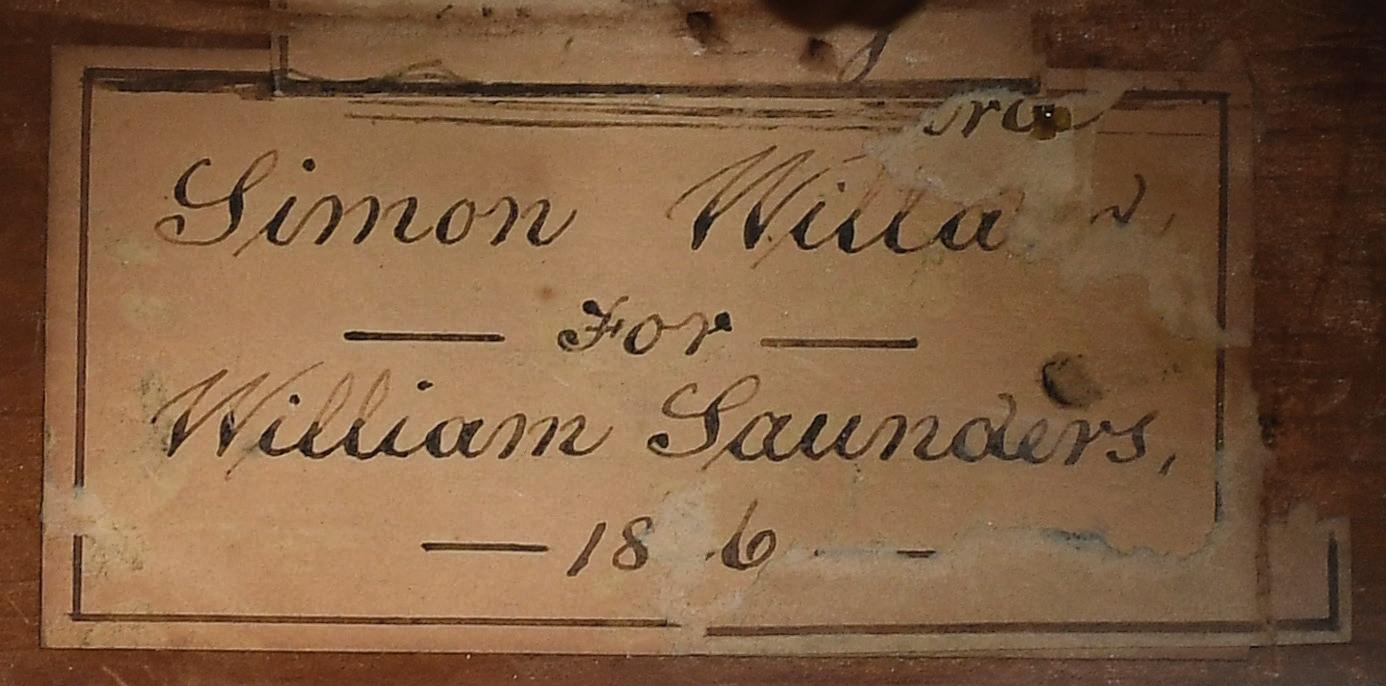 Simon Willa
— For —
William Saunders,
— 18 6 —